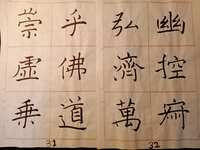 乎佛道
崇虛乘
31
幽控寂
弘濟萬
32